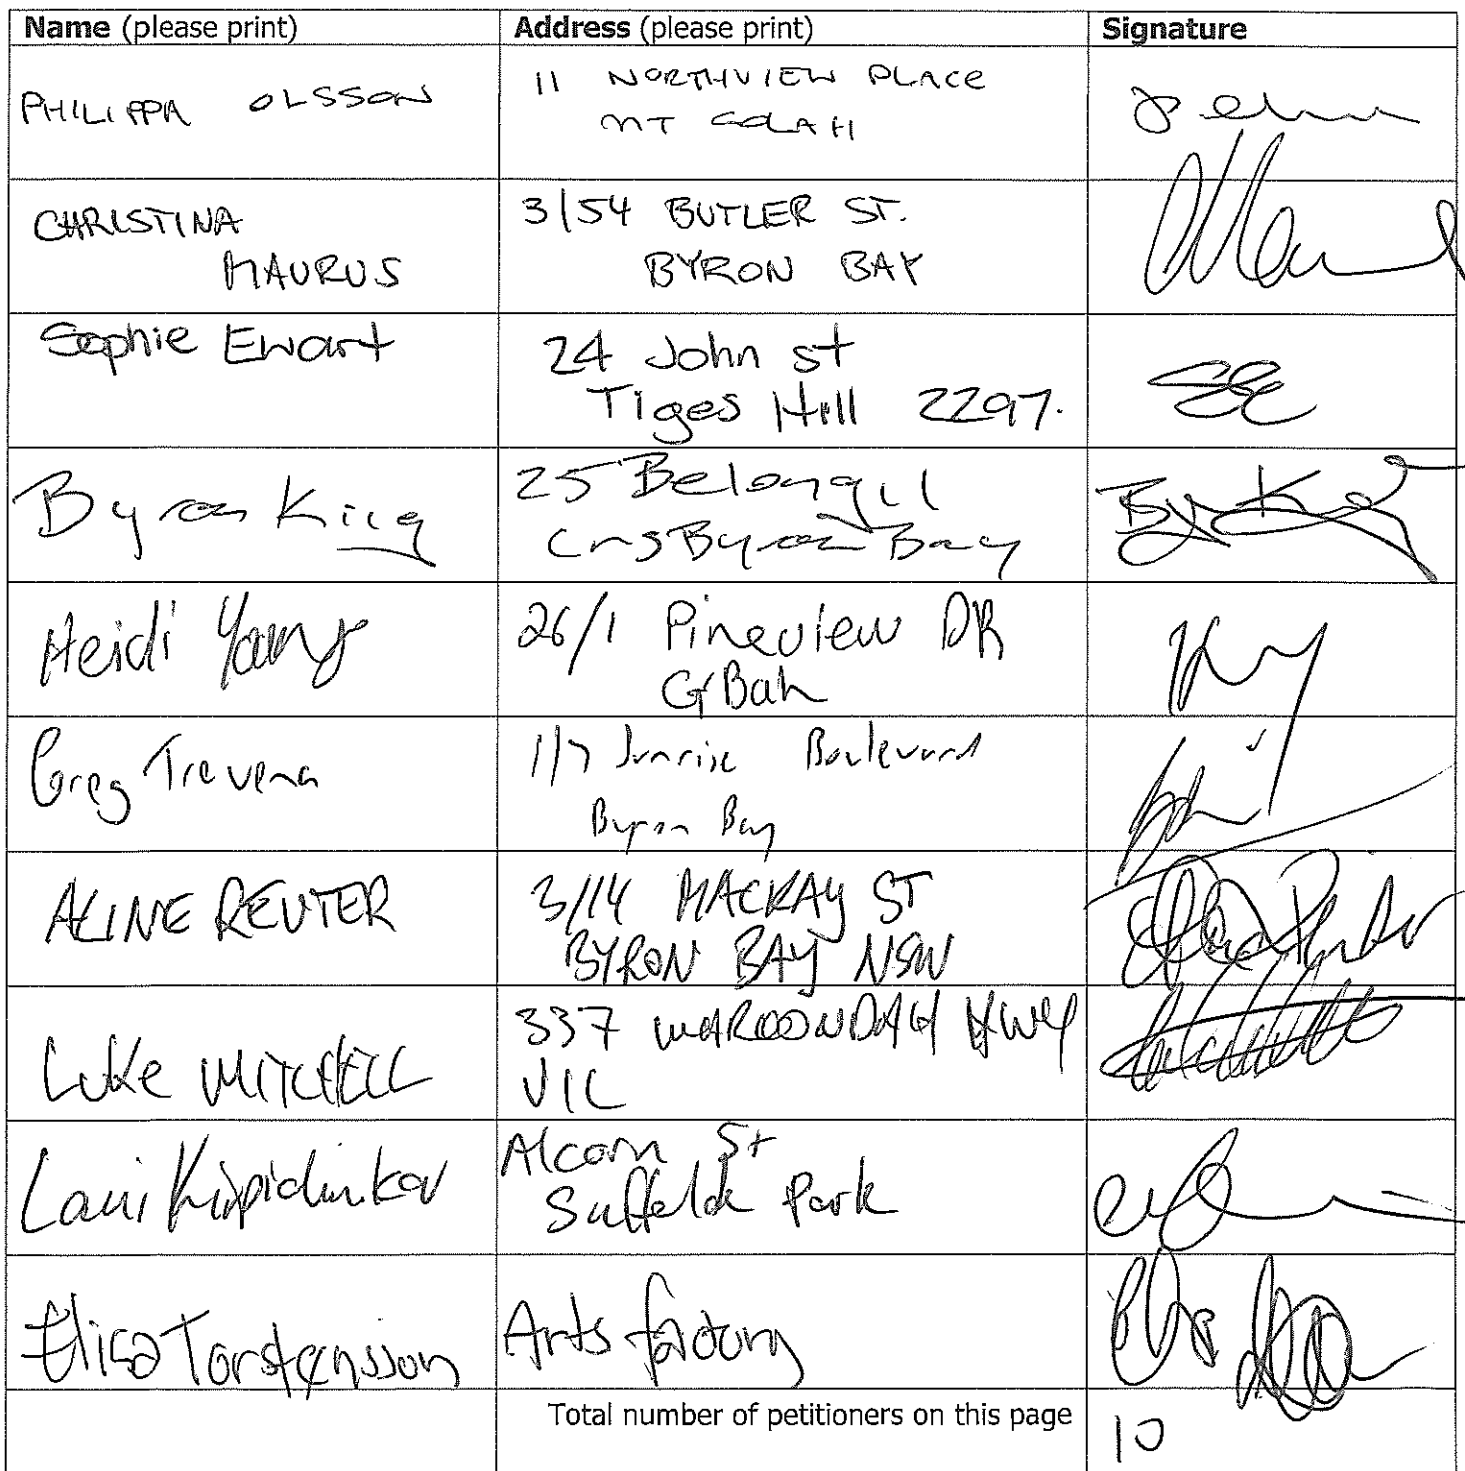 Name (please print) Address (please print) Signature
PHILIPPA OLSSON
11 NORTHVIEW PLACE
MT COLAH
CHRISTINA
MAURUS
3/54 BUTLER ST.
BYRON BAY
Sophie Ewart
24 John st
Tiges Hill 2297.
Byron King
25 Belongil
Crs Byron Bay
Heidi Young
26/1 Pineview DR
GBah
Greg Trevena
1/7 Sunrise Boulevard
Byron Bay
ALINE REUTER
3/14 MACKAY ST
BYRON BAY NSW
Luke MITCHELL
337 MAROONDAH HWY
VIC
Alcorn St
Suffolk Park
Elisa Torstensson
Arts factory
Total number of petitioners on this page
10